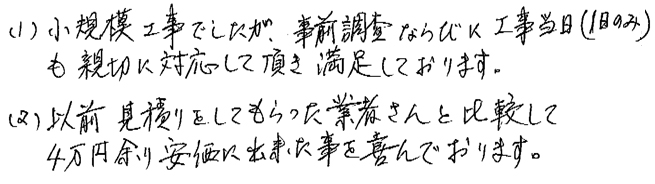 (1) 小規模工事でしたが、事前調査ならびに工事当日(1日のみ)
も親切に対応して頂き満足しております。
(2) 以前見積りをしてもらった業者さんと比較して
4万円余り安価に出来た事を喜んでおります。